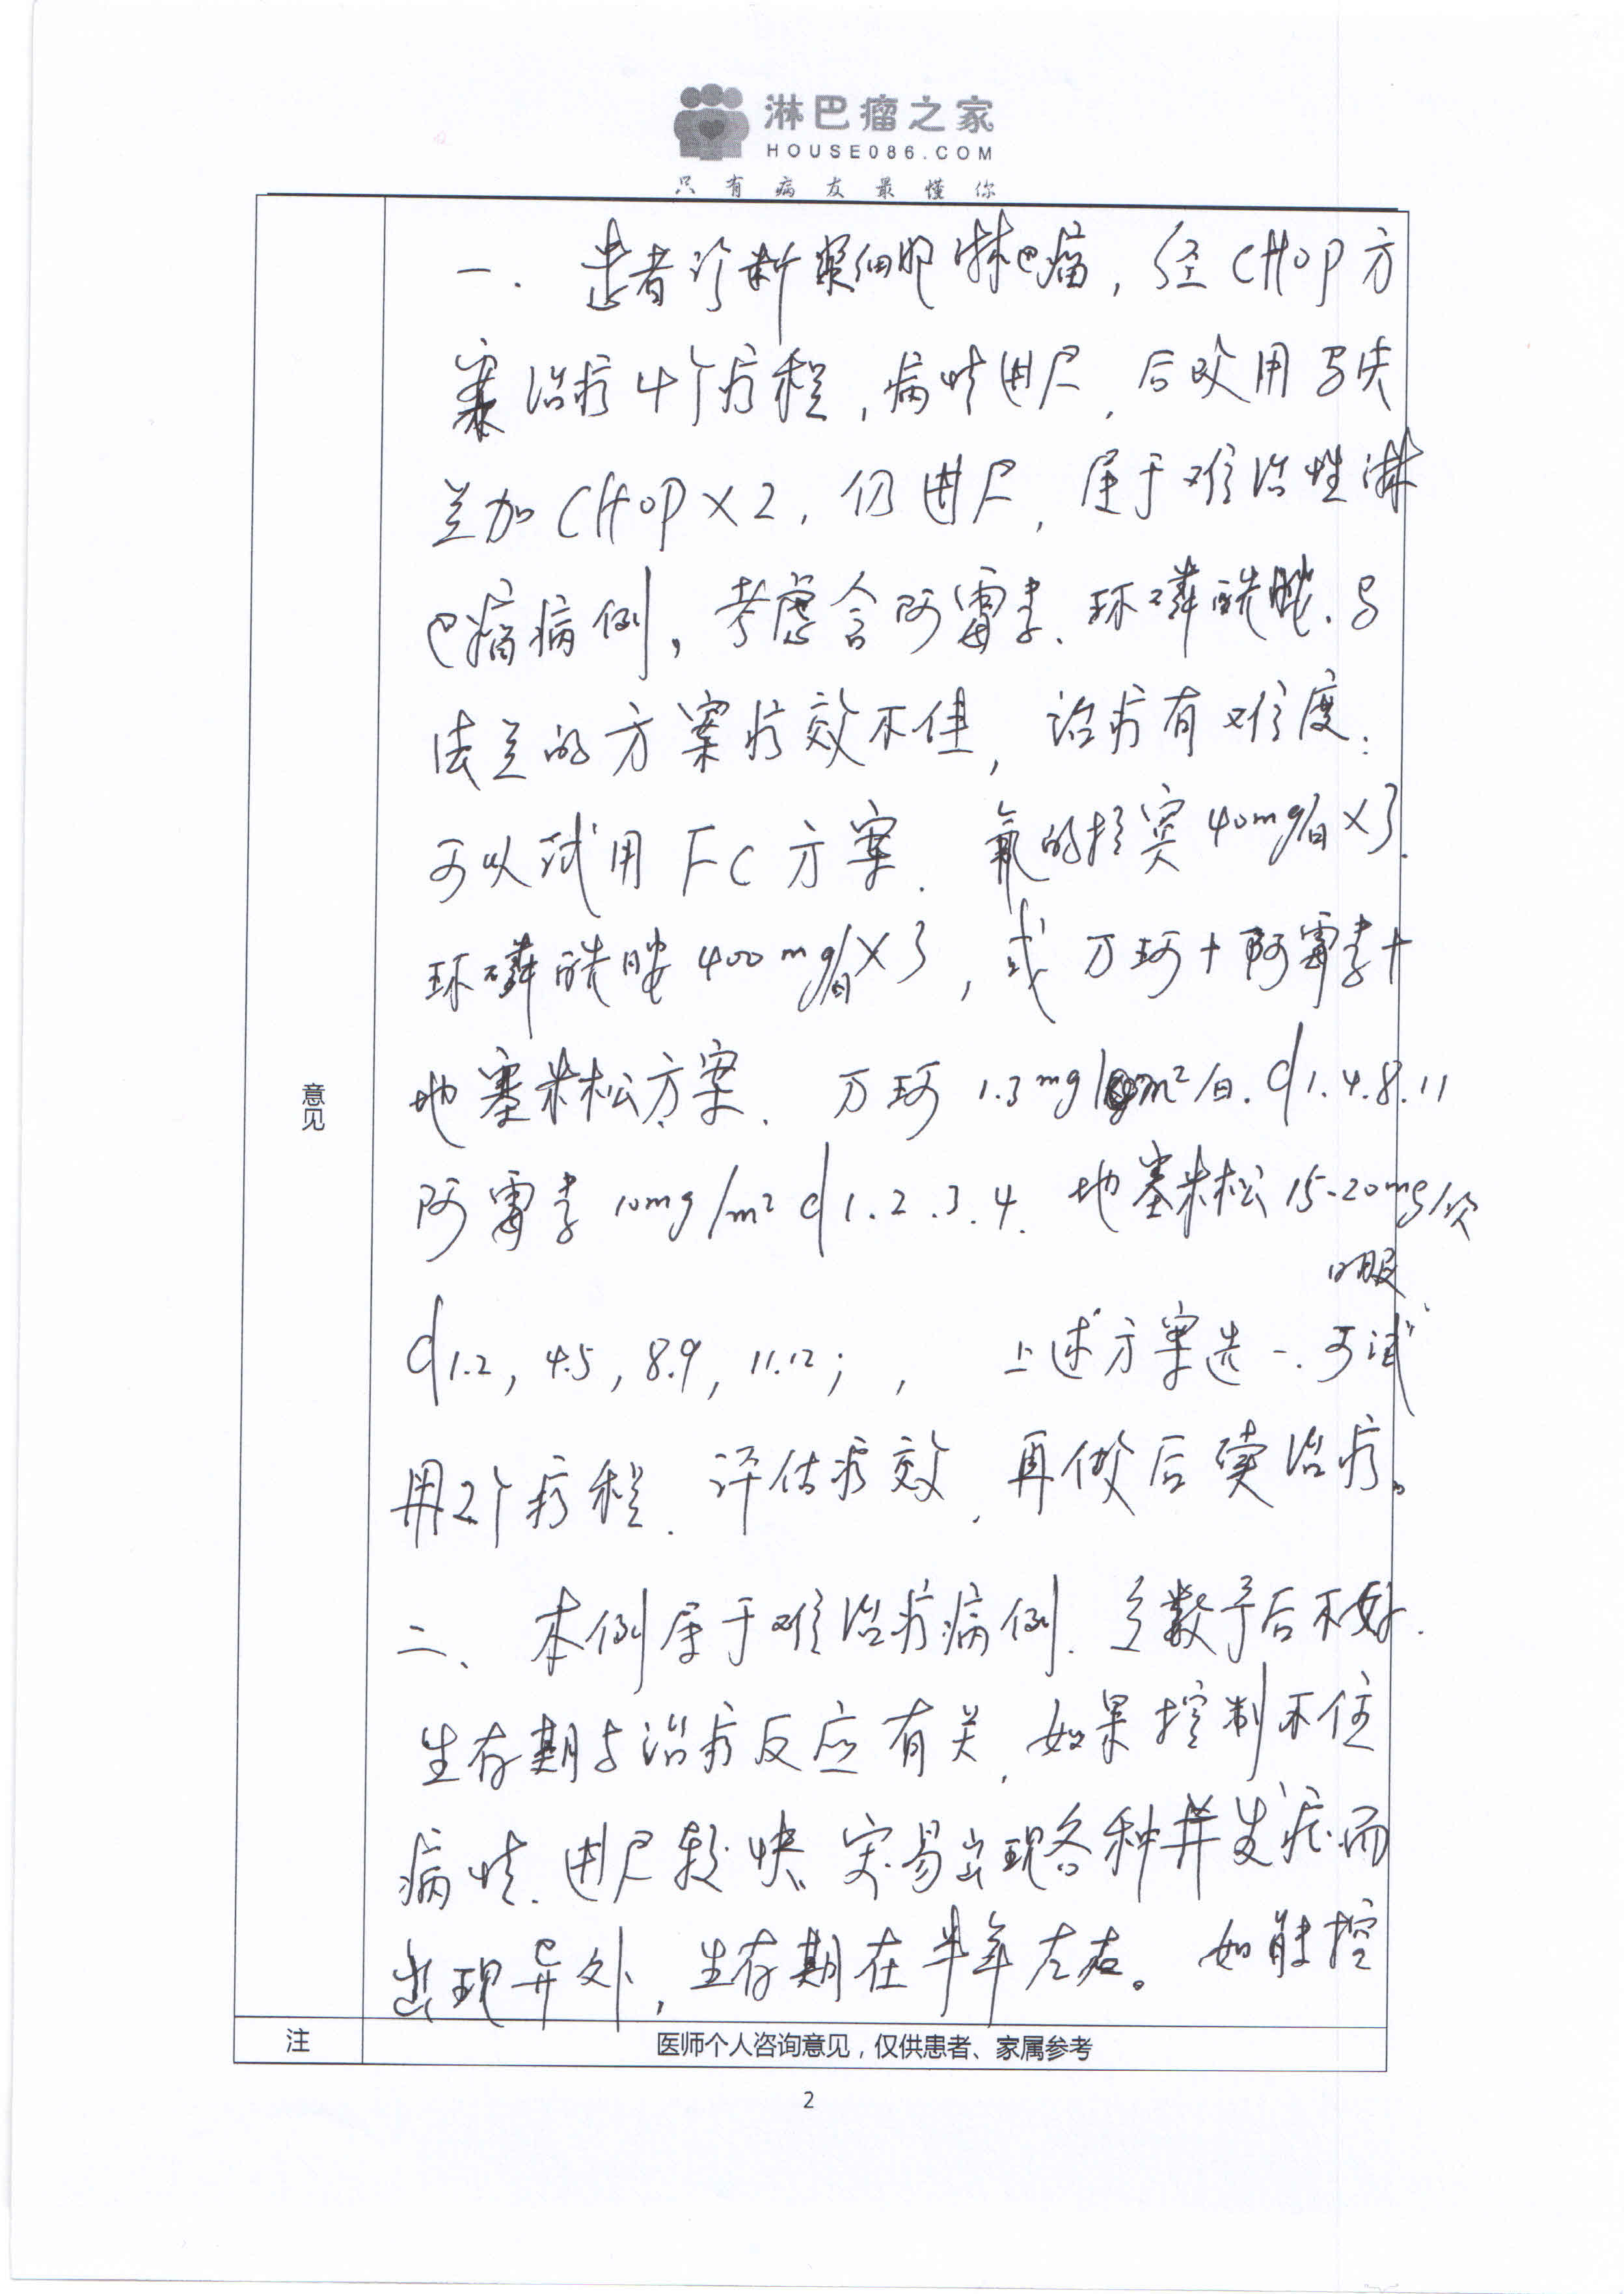 淋巴瘤之家
HOUSE086.COM
只有病友最懂你
一. 患者诊断浆细胞淋巴瘤, 经CHOP方
案治疗4个疗程, 病情进展, 后改用马法
兰加CHOP×2, 仍进展, 属于难治性淋
巴瘤病例, 考虑含阿霉素、环磷酰胺、马
法兰的方案疗效不佳, 治疗有难度.
可以试用FC方案. 氟的拉宾40mg/日×3.
环磷酰胺400mg/日×3, 或万珂+阿霉素+
地塞米松方案. 万珂1.3mg/m²/日. d1.4.8.11
阿霉素10mg/m² d1.2.3.4. 地塞米松15-20mg/次
口服
d1.2, 4.5, 8.9, 11.12; , 上述方案选一. 可试
用2个疗程. 评估疗效, 再做后续治疗。
意见
二、本例属于难治疗病例. 多数予后不好.
生存期与治疗反应有关, 如果控制不住
病情. 进展较快, 容易出现各种并发症而
出现异外, 生存期在半年左右。如能控
注 医师个人咨询意见,仅供患者、家属参考
2